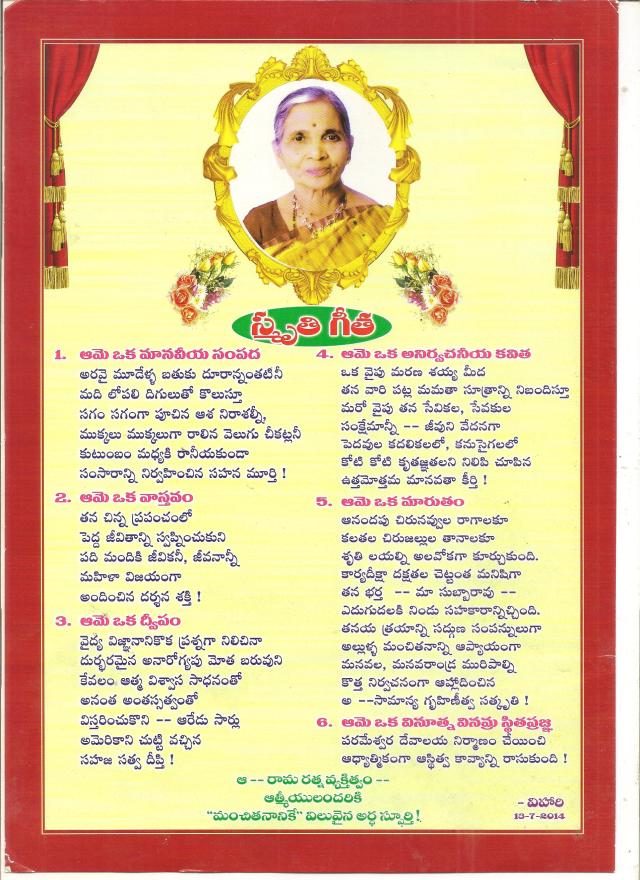 స్మృతి గీత
1. ఆమె ఒక మానవీయ సంపద
అరవై మూడేళ్ళ బతుకు దూరాన్నంతటినీ
మది లోపలి దిగులుతో కొలుస్తూ
సగం సగంగా పూచిన ఆశ నిరాశల్నీ,
ముక్కలు ముక్కలుగా రాలిన వెలుగు చీకట్లనీ
కుటుంబం మధ్యకి రానీయకుండా
సంసారాన్ని నిర్వహించిన సహన మూర్తి !
2. ఆమె ఒక వాస్తవం
తన చిన్న ప్రపంచంలో
పెద్ద జీవితాన్ని స్వప్నించుకుని
పది మందికి జీవికనీ, జీవనాన్నీ
మహిళా విజయంగా
అందించిన దర్శన శక్తి !
3. ఆమె ఒక ద్వీపం
వైద్య విజ్ఞానానికొక ప్రశ్నగా నిలిచినా
దుర్భరమైన అనారోగ్యపు మోత బరువుని
కేవలం ఆత్మ విశ్వాస సాధనంతో
అనంత అంతస్సత్వంతో
విస్తరించుకొని -- ఆరేడు సార్లు
అమెరికాని చుట్టి వచ్చిన
సహజ సత్వ దీప్తి !
4. ఆమె ఒక అనిర్వచనీయ కవిత
ఒక వైపు మరణ శయ్య మీద
తన వారి పట్ల మమతా సూత్రాన్ని నిబందిస్తూ
మరో వైపు తన సేవికల, సేవకుల
సంక్షేమాన్నీ -- జీవుని వేదనగా
పెదవుల కదలికలలో, కనుసైగలలో
కోటి కోటి కృతజ్ఞతలని నిలిపి చూపిన
ఉత్తమోత్తమ మానవతా కీర్తి !
5. ఆమె ఒక మారుతం
ఆనందపు చిరునవ్వుల రాగాలకూ
కలతల చిరుజల్లుల తానాలకూ
శృతి లయల్ని అలవోకగా కూర్చుకుంది.
కార్యదీక్షా దక్షతల చెట్టంత మనిషిగా
తన భర్త -- మా సుబ్బారావు --
ఎదుగుదలకి నిండు సహకారాన్నిచ్చింది.
తనయ త్రయాన్ని సద్గుణ సంపన్నులుగా
అల్లుళ్ళ మంచితనాన్ని ఆప్యాయంగా
మనవల, మనవరాండ్ర మురిపాల్ని
కొత్త నిర్వచనంగా ఆహ్లాదించిన
అ --సామాన్య గృహిణీత్వ సత్కృతి !
6. ఆమె ఒక వినూత్న వినమ్ర స్థితప్రజ్ఞ
పరమేశ్వర దేవాలయ నిర్మాణం చేయించి
ఆధ్యాత్మికంగా ఆస్థిత్వ కావ్యాన్ని రాసుకుంది !
ఆ -- రామ రత్న వ్యక్తిత్వం --
ఆత్మీయులందరికి
"మంచితనానికే" విలువైన అర్ధ స్ఫూర్తి !
- విహారి
13-7-2014